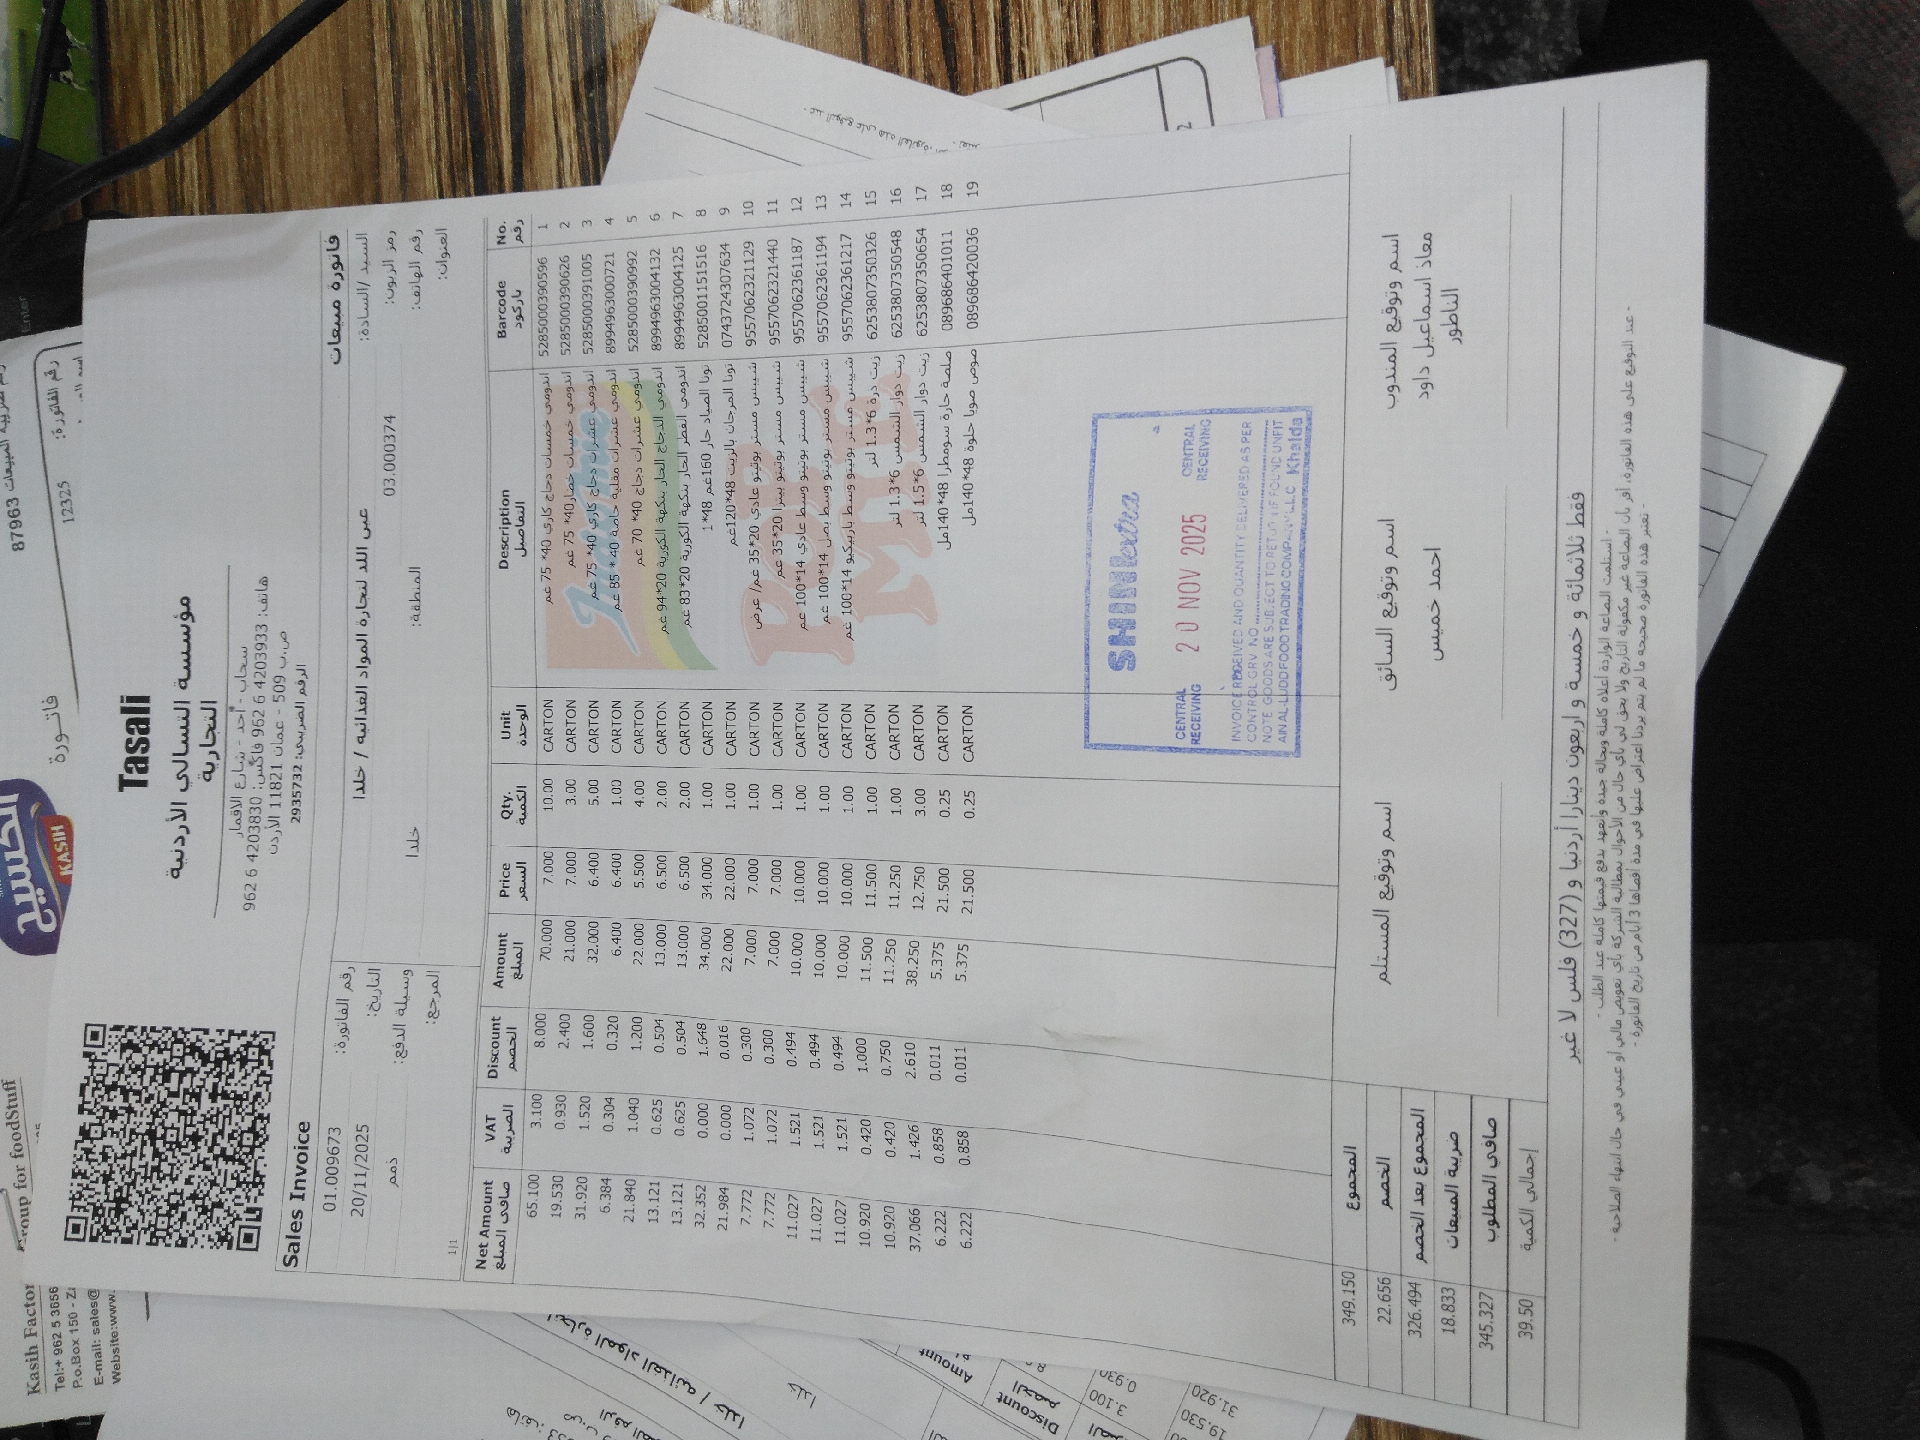 Tasali
مؤسسة التسالي الأردنية
التجارية
سحاب - أحد - شارع الاقمار
هاتف: 4203933 6 962 فاكس: 4203830 6 962
ص.ب 509 - عمان 11821 الأردن
الرقم الضريبي: 2935732
Sales Invoice فاتورة مبيعات
السيد /السادة: عين اللد لتجارة المواد الغذائيه / خلدا
رمز الزبون: 03.000374
رقم الهاتف: المنطقة: خلدا
العنوان:
رقم الفاتورة: 01.009673
التاريخ: 20/11/2025
وسيلة الدفع: ذمم
المرجع:
1|1
Net Amount VAT Discount Amount Price Qty. Unit Description Barcode No.
صافي المبلغ الضريبة الخصم المبلغ السعر الكمية الوحدة التفاصيل باركود رقم
65.100 3.100 8.000 70.000 7.000 10.00 CARTON اندومي خمسات دجاج كاري 40* 75 غم 5285000390596 1
19.530 0.930 2.400 21.000 7.000 3.00 CARTON اندومي خمسات خضار40* 75 غم 5285000390626 2
31.920 1.520 1.600 32.000 6.400 5.00 CARTON اندومي عشرات دجاج كاري 40* 75 غم 5285000391005 3
6.384 0.304 0.320 6.400 6.400 1.00 CARTON اندومي عشرات مقلية خاصة 40* 85 غم 8994963000721 4
21.840 1.040 1.200 22.000 5.500 4.00 CARTON اندومي عشرات دجاج 40* 70 غم 5285000390992 5
13.121 0.625 0.504 13.000 6.500 2.00 CARTON اندومي الدجاج الحار بنكهة الكورية 20*94 غم 8994963004132 6
13.121 0.625 0.504 13.000 6.500 2.00 CARTON اندومي الفطر الحار بنكهة الكورية 20*83 غم 8994963004125 7
32.352 0.000 1.648 34.000 34.000 1.00 CARTON تونا الصياد حار 160غم 48*1 5285001151516 8
21.984 0.000 0.016 22.000 22.000 1.00 CARTON تونا المرجان بالزيت 48*120غم 0743724307634 9
7.772 1.072 0.300 7.000 7.000 1.00 CARTON شيبس مستر بوتيتو عادي 20*35 غم/ عرض 9557062321129 10
7.772 1.072 0.300 7.000 7.000 1.00 CARTON شيبس مستر بوتيتو بيتزا 20*35 غم 9557062321440 11
11.027 1.521 0.494 10.000 10.000 1.00 CARTON شيبس مستر بوتيتو وسط عادي 14*100 غم 9557062361187 12
11.027 1.521 0.494 10.000 10.000 1.00 CARTON شيبس مستر بوتيتو وسط بصل 14*100 غم 9557062361194 13
11.027 1.521 0.494 10.000 10.000 1.00 CARTON شيبس مستر بوتيتو وسط باربيكيو 14*100 غم 9557062361217 14
10.920 0.420 1.000 11.500 11.500 1.00 CARTON زيت ذرة 6*1.3 لتر 6253807350326 15
10.920 0.420 0.750 11.250 11.250 1.00 CARTON زيت دوار الشمس 6*1.3 لتر 6253807350548 16
37.066 1.426 2.610 38.250 12.750 3.00 CARTON زيت دوار الشمس 6*1.5 لتر 6253807350654 17
6.222 0.858 0.011 5.375 21.500 0.25 CARTON صلصة حارة سومطرا 48*140مل 089686401011 18
6.222 0.858 0.011 5.375 21.500 0.25 CARTON صوص صويا حلوة 48*140مل 089686420036 19
CENTRAL RECEIVING
20 NOV 2025
CENTRAL RECEIVING
INVOICE RECEIVED AND QUANTITY DELIVERED AS PER
CONTROL GRV. NO
NOTE GOODS ARE SUBJECT TO RETURN IF FOUND UNFIT
AIN AL-LUDD FOOD TRADING COMPANY LLC Khalda
المجموع 349.150
الخصم 22.656
المجموع بعد الخصم 326.494
ضريبة المبيعات 18.833
صافي المطلوب 345.327
إجمالي الكمية 39.50
اسم وتوقيع المندوب
معاذ اسماعيل داود
الناطور
اسم وتوقيع السائق
احمد خميس
اسم وتوقيع المستلم
فقط ثلاثمائة و خمسة و اربعون دينارا أردنيا و (327) فلس لا غير
- استلمت البضاعة الواردة أعلاه كاملة وبحالة جيدة وأتعهد بدفع قيمتها كاملة عند الطلب -
Kasih Factor
Group for foodStuff
Tel:+ 962 5 3656
P.o.Box 150 - Z
E-mail: sales@
Website:www.
الكسيح
KASIH
فاتـورة
87963
رقم الفاتورة: 12325
Enter